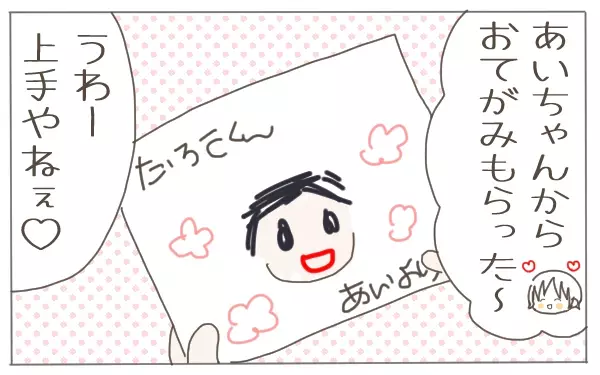 あいちゃんから
おてがみもらった～
たろてくん
あいより
うわー
上手やねぇ♡